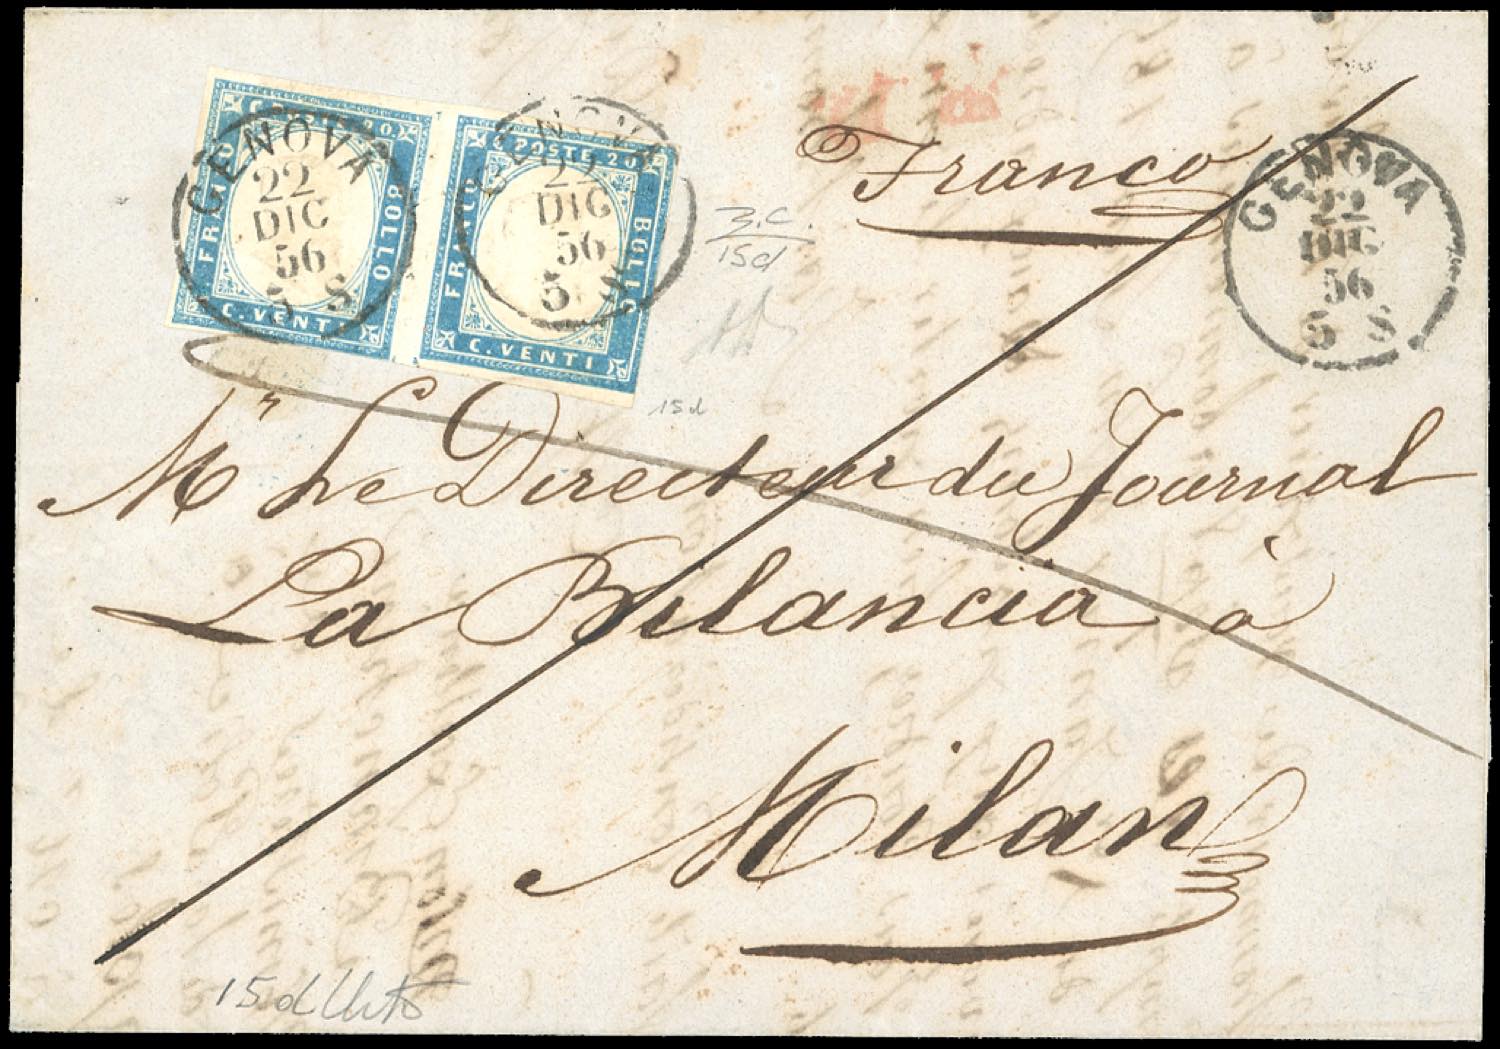 C. POSTE 20.
FRANCO
BOLLO
C. VENTI
GENOVA
22
DIC
56
5 S
C. POSTE 20
FRANCO
BOLLO
C. VENTI
GENOVA
22
DIC
56
5 S
Franco
GENOVA
22
DIC
56
5 S
3. C.
15d
15d
Mr Le Directeur du Journal
La Bilancia à
Milan
15d